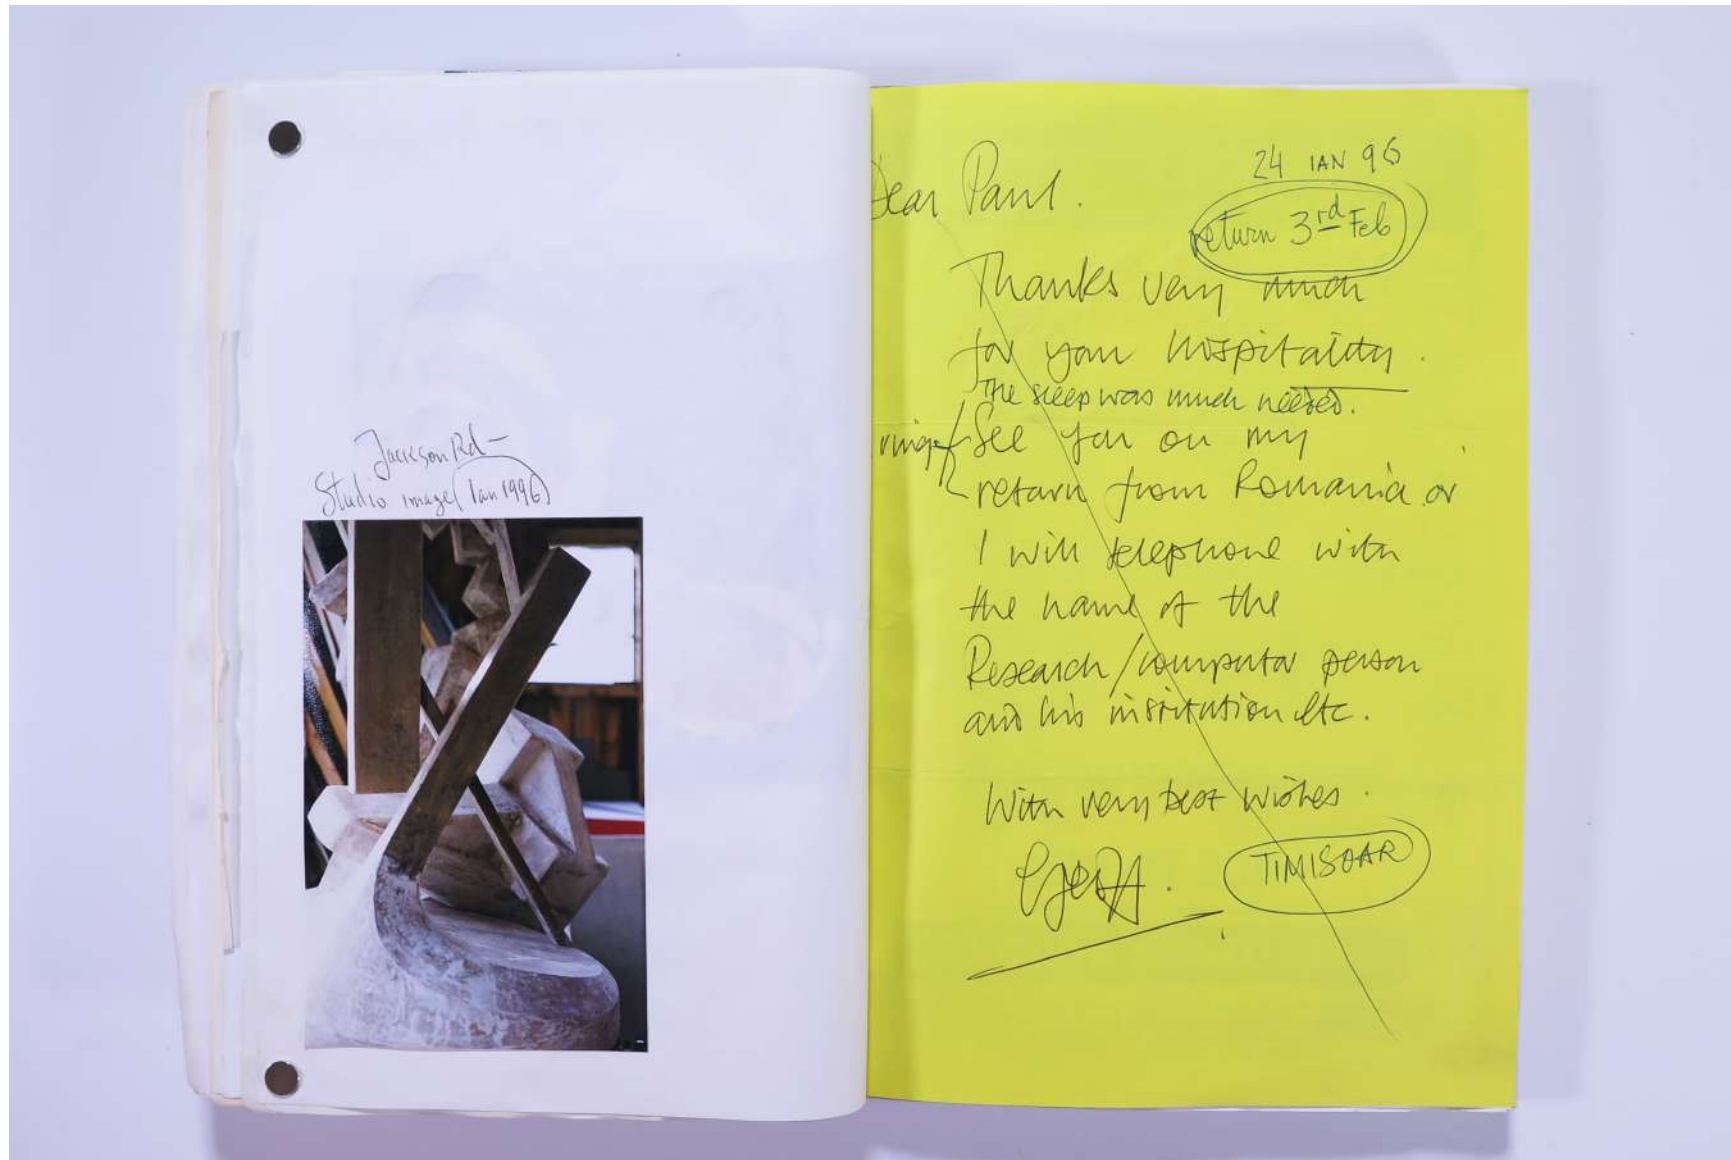 Jackson Rd –
Studio image (Ian 1996)
24 IAN 96
return 3rd Feb
Dear Paul.
Thanks very much
for your hospitality.
The sleep was much needed.
See you on my
return from Romania or
I will telephone with
the name of the
Research/computer person
and his institution etc.
With very best wishes.
TIMISOAR